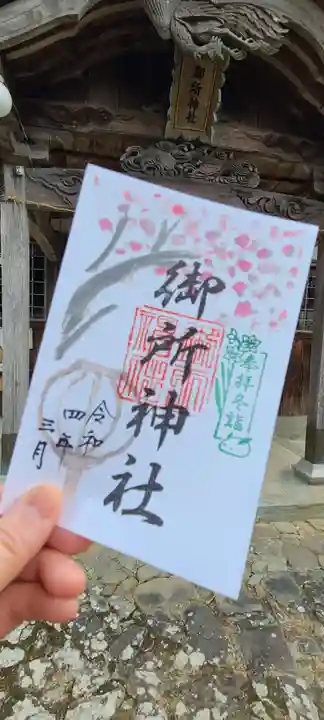 御所神社
御所神社
奉拝冬詣
令和
四年
三月